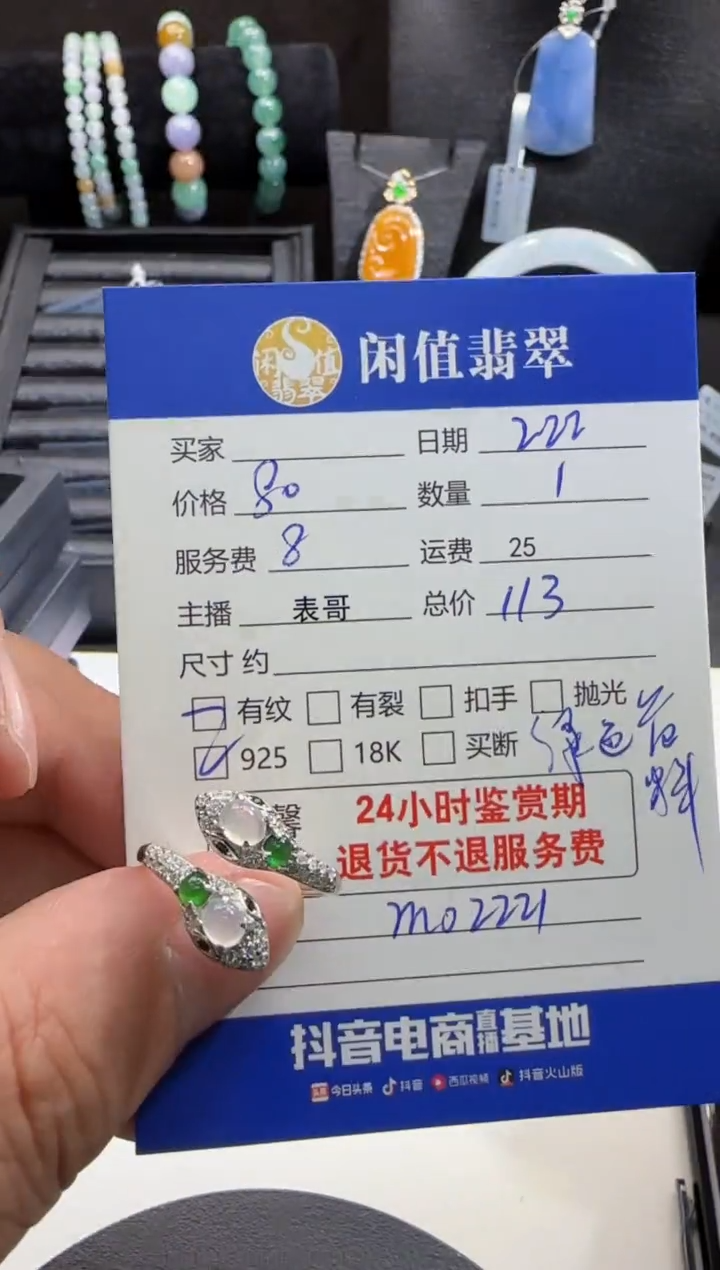 闲值翡翠
闲值翡翠
买家 日期 222
价格 80 数量 1
服务费 8 运费 25
主播 表哥 总价 113
尺寸 约
有纹 有裂 扣手 抛光
925 18K 买断 绿色为
料
馨 24小时鉴赏期
退货不退服务费
m02221
抖音电商直播基地
头条 今日头条 抖音 西瓜视频 抖音火山版